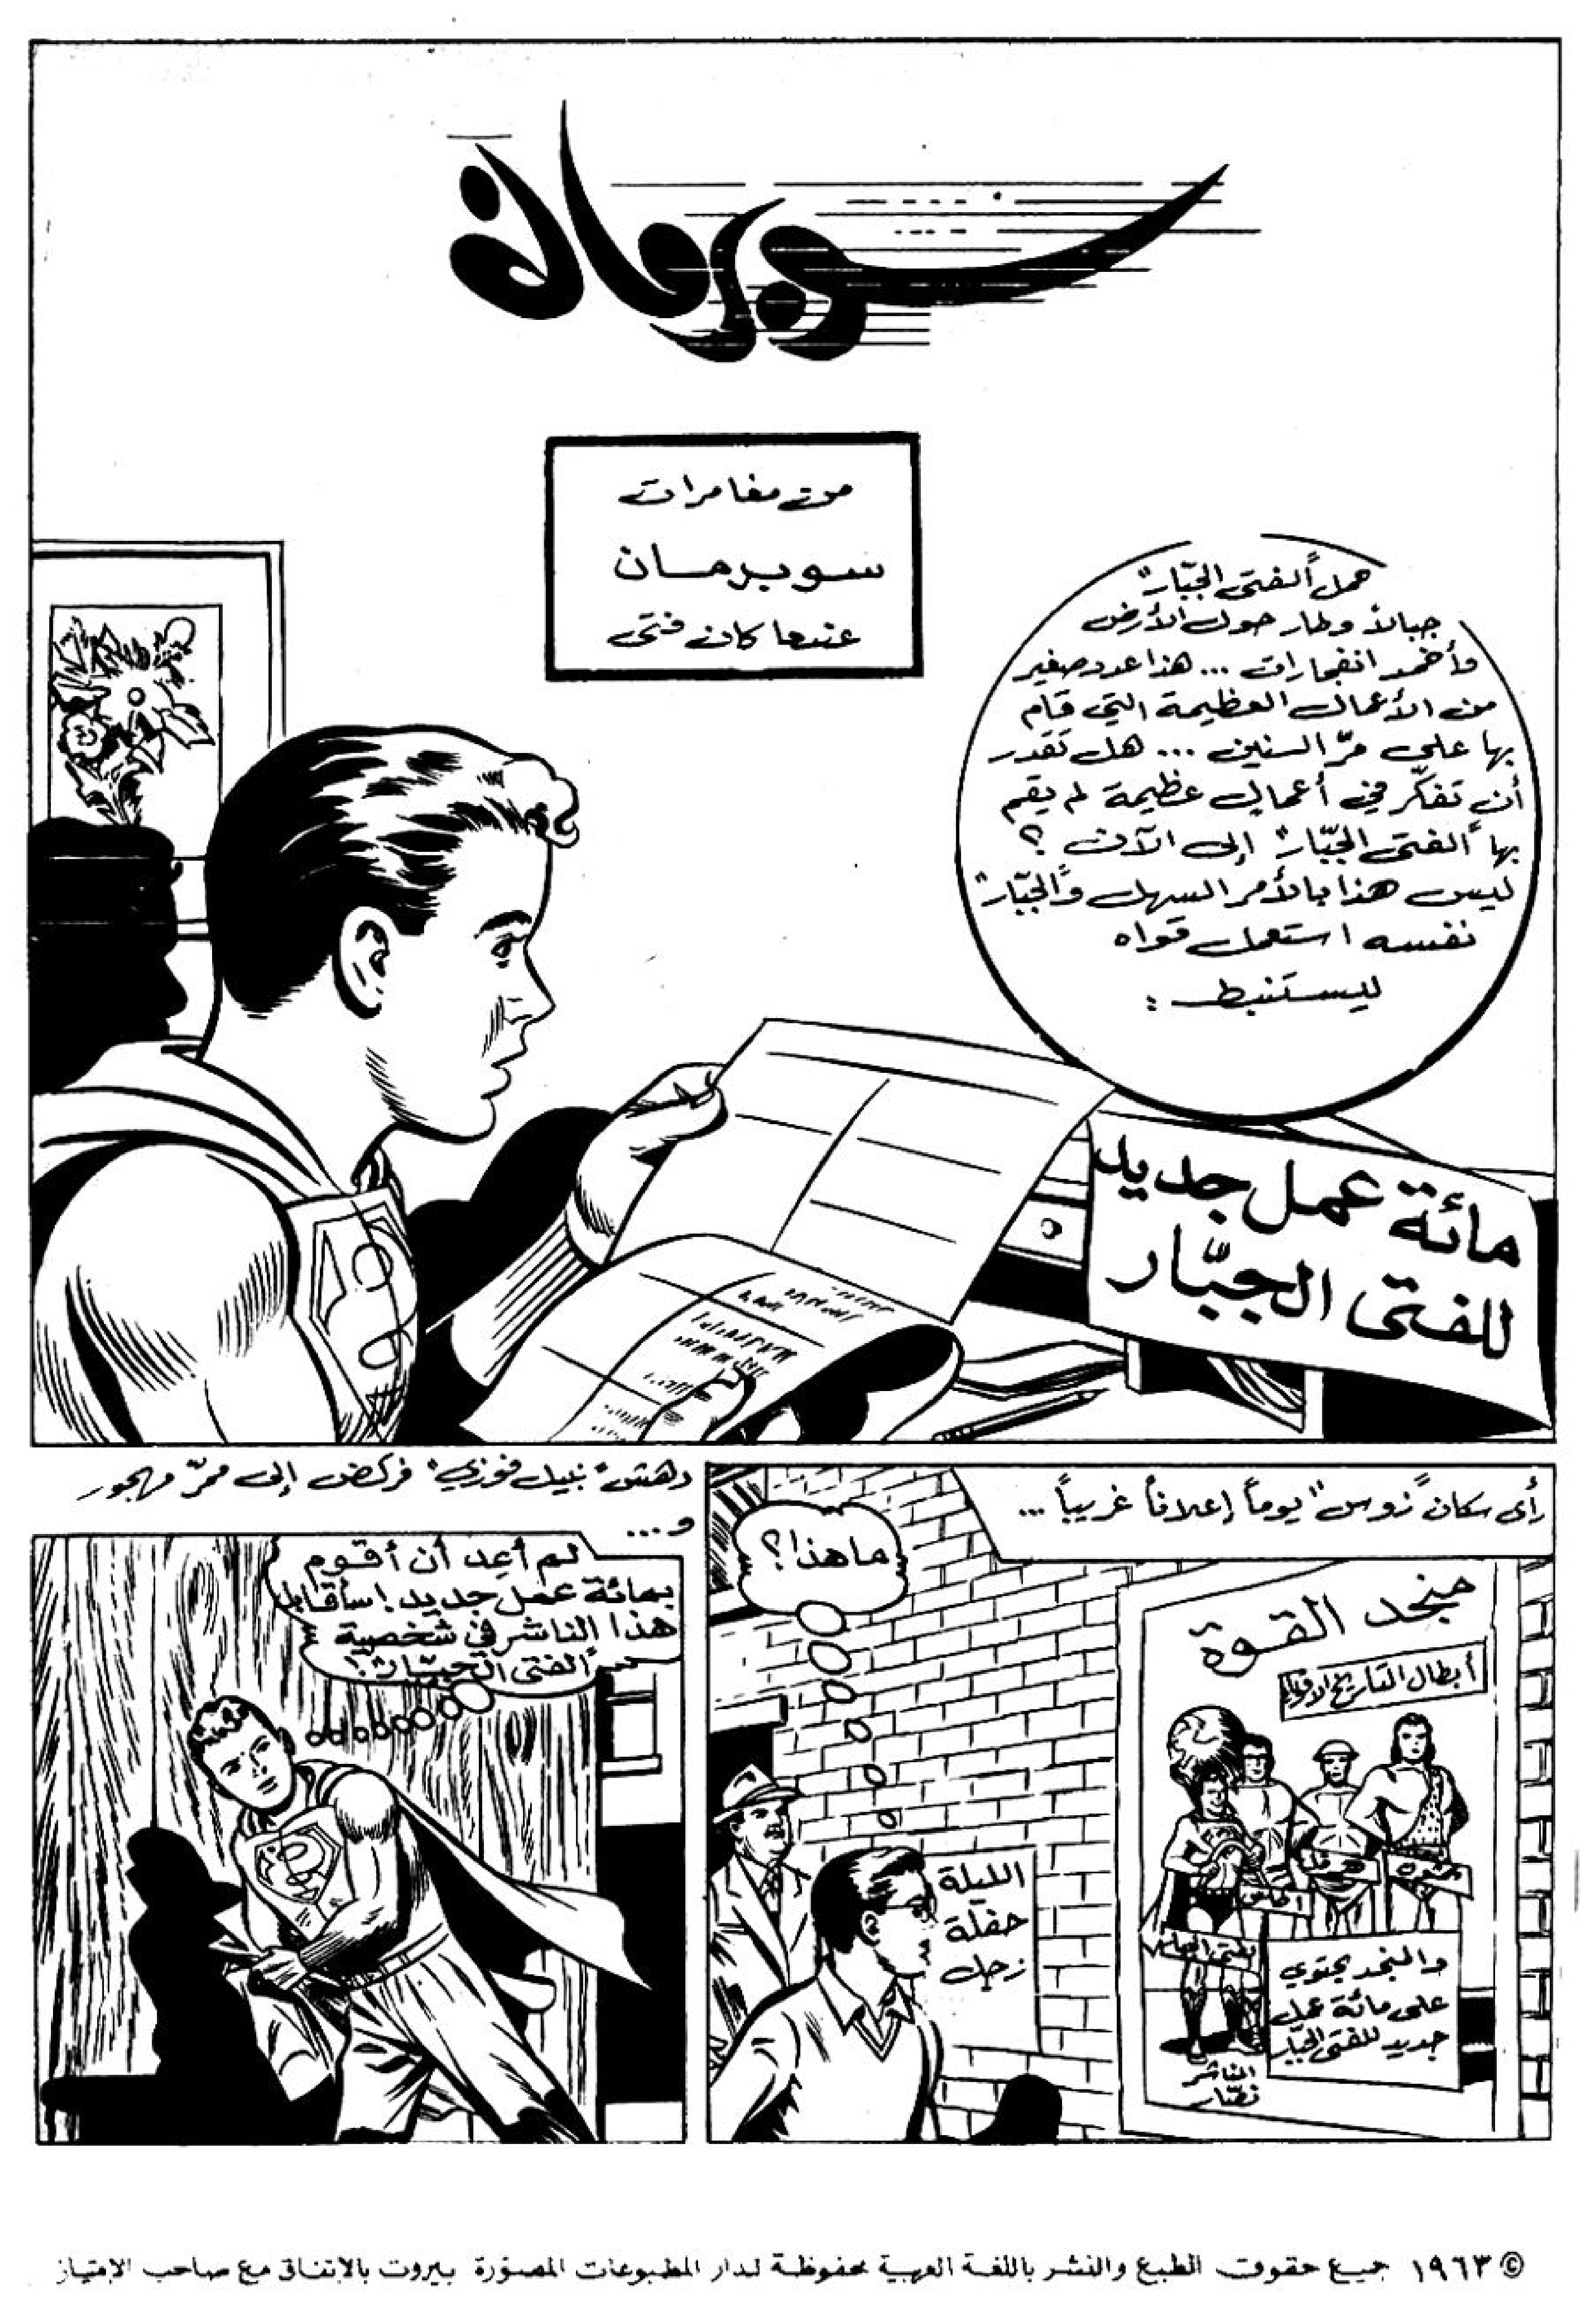 سوبرمان
من مغامرات
سوبرمان
عندما كان فتى
حمل "الفتى الجبّار"
جبالاً وطار حول الأرض
وأخمد انفجارات ... هذا عدد صغير
من الأعمال العظيمة التي قام
بها على مرّ السنين ... هل تقدر
أن تفكّر في أعمال عظيمة لم يقم
بها "الفتى الجبّار" إلى الآن ؟
ليس هذا بالأمر السهل و"الجبّار"
نفسه استعمل قواه
ليستنبط :
مائة عمل جديد
للفتى الجبّار
رأى سكان "زوس" يوماً إعلاناً غريباً ...
ما هذا ؟
منجد القوة
أبطال التاريخ الأقوياء
الليلة
حفلة
زجل
والمنجد يحتوي
على مائة عمل
جديد للفتى الجبّار
الناشر
نصّار
دهش "نبيل فوزي" فركض إلى ممرّ مهجور
و ...
لم أعِد أن أقوم
بمائة عمل جديد ! سأقابل
هذا الناشر في شخصية
"الفتى الجبّار" !
© ١٩٦٣ جميع حقوق الطبع والنشر باللغة العربية محفوظة لدار المطبوعات المصوّرة بيروت بالاتفاق مع صاحب الإمتياز